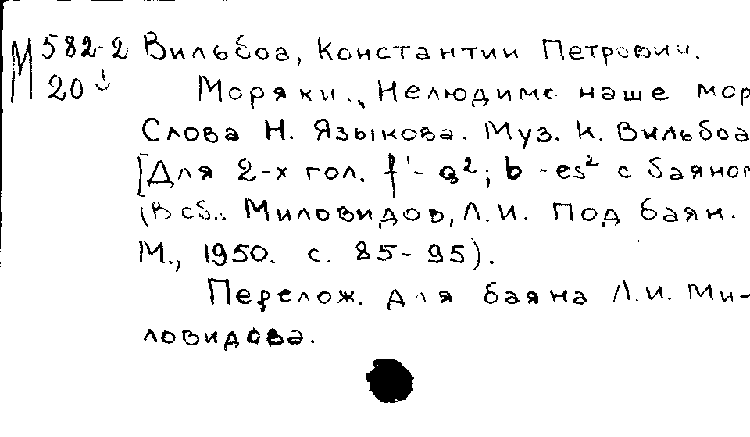 М 582-2 Вильбоа, Константин Петрович.
20↓ Моряки., Нелюдимо наше мор
Слова Н. Языкова. Муз. К. Вильбоа
[Для 2-х гол. f¹- g²; b -es² с баяном
(В сб.: Миловидов, Л.И. Под баян.
М., 1950. с. 85-95).
Перелож. для баяна Л.И. Ми-
ловидова.